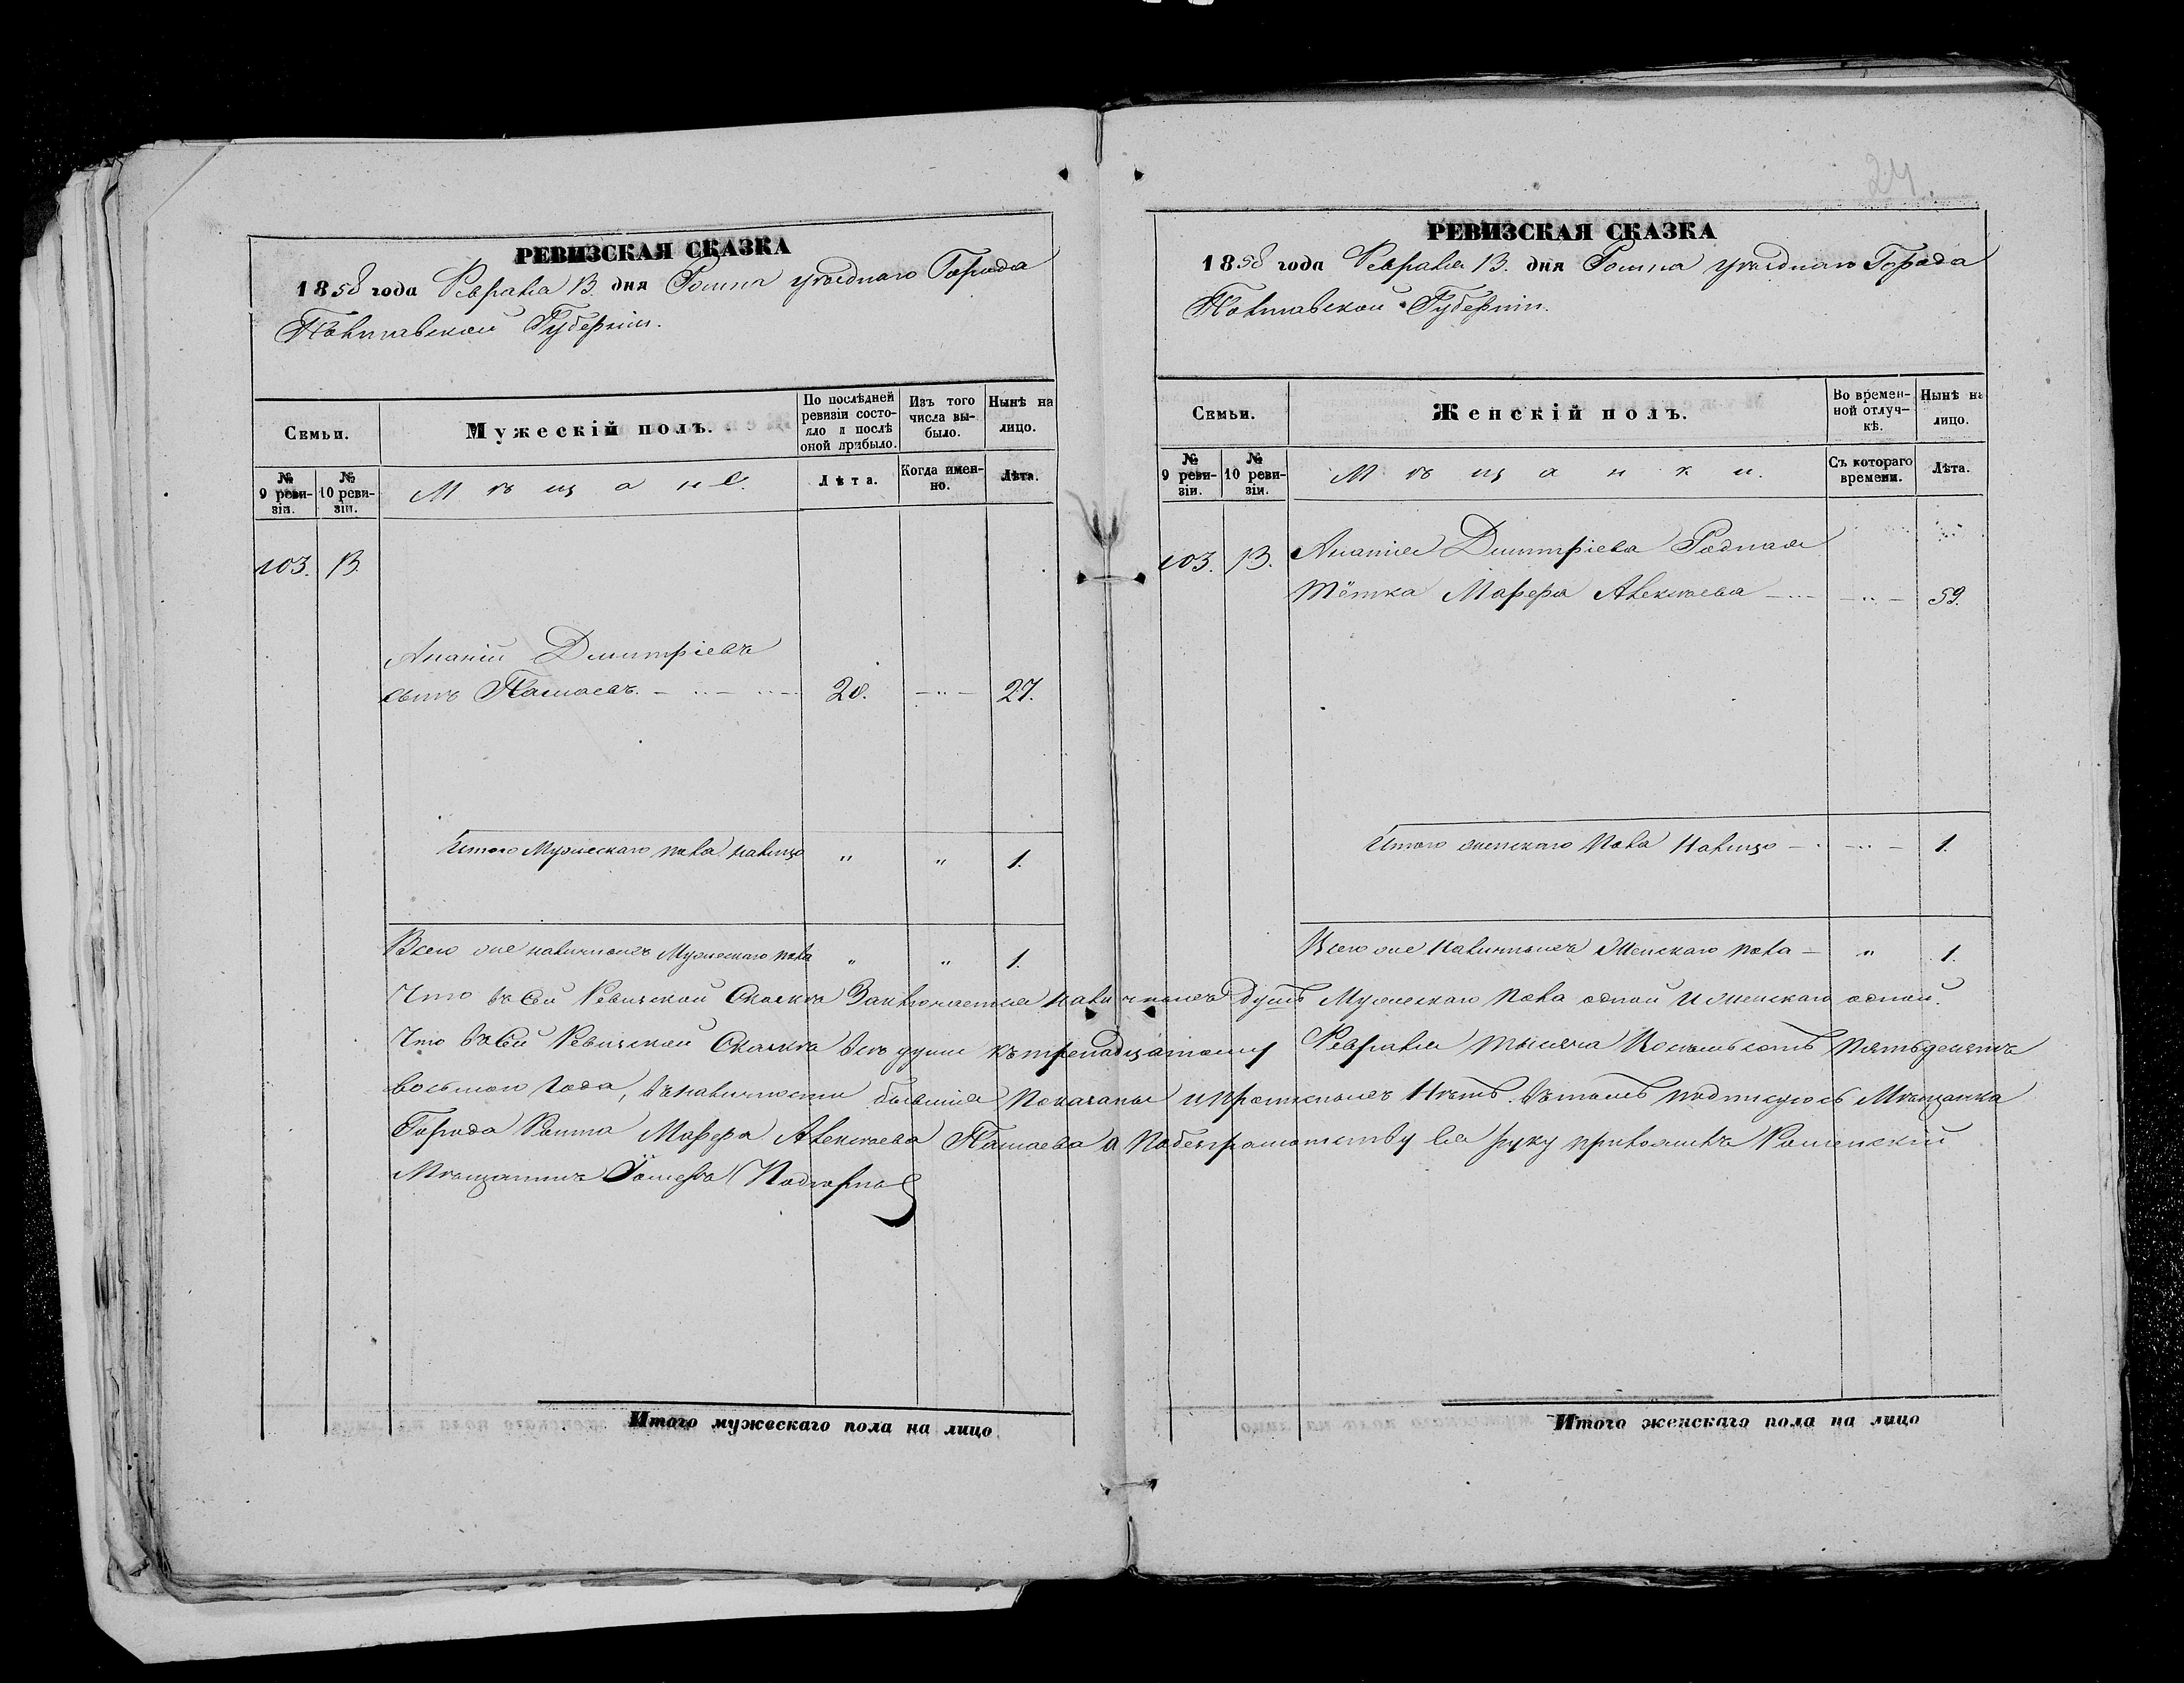 РЕВИЗСКАЯ СКАЗКА
1858 года Февраля 13. дня Ромна уѣзднаго Города
Полтавской Губерніи.
Семьи.
Мужескій полъ.
По послѣдней ревизіи состояло и послѣ оной прибыло.
Изъ того числа выбыло.
Нынѣ на лицо.
№ 9 ревизіи.
№ 10 ревизіи.
Мѣщане.
Лѣта.
Когда именно.
Лѣта.
103. 13.
Ананій Дмитріевъ
сынъ 20. 27.
Итого Мужескаго пола налицо " " 1.
Всего же наличныхъ Мужескаго пола " " 1.
24.
РЕВИЗСКАЯ СКАЗКА
1858 года Февраля 13. дня Ромна уѣзднаго Города
Полтавской Губерніи.
Семьи.
Женскій полъ.
Во временной отлучкѣ.
Нынѣ на лицо.
№ 9 ревизіи.
№ 10 ревизіи.
Мѣщанки.
Съ котораго времени.
Лѣта.
103. 13. Ананія Дмитріева Родная
тётка Марфа Алексѣева 59.
Итого женскаго пола Налицо 1.
Всего же Наличныхъ Женскаго пола " 1.
Что въ сей Ревизской Сказкѣ Заключается наличныхъ душъ Мужескаго пола одной и женскаго одной.
Что въ сей Ревизской Сказкѣ всѣ души къ тренадцатому Февраля тысяча Восемьсотъ пятьдесятъ
восьмого года, въ наличности бывшія Показаны и пропискныхъ Нѣтъ. Въ томъ подписуюсь Мѣщанка
Города Ромна Марфа Алексѣева а по безграмотству ея руку приложилъ Роменскій
Мѣщанинъ
Итого мужескаго пола на лицо
Итого женскаго пола на лицо